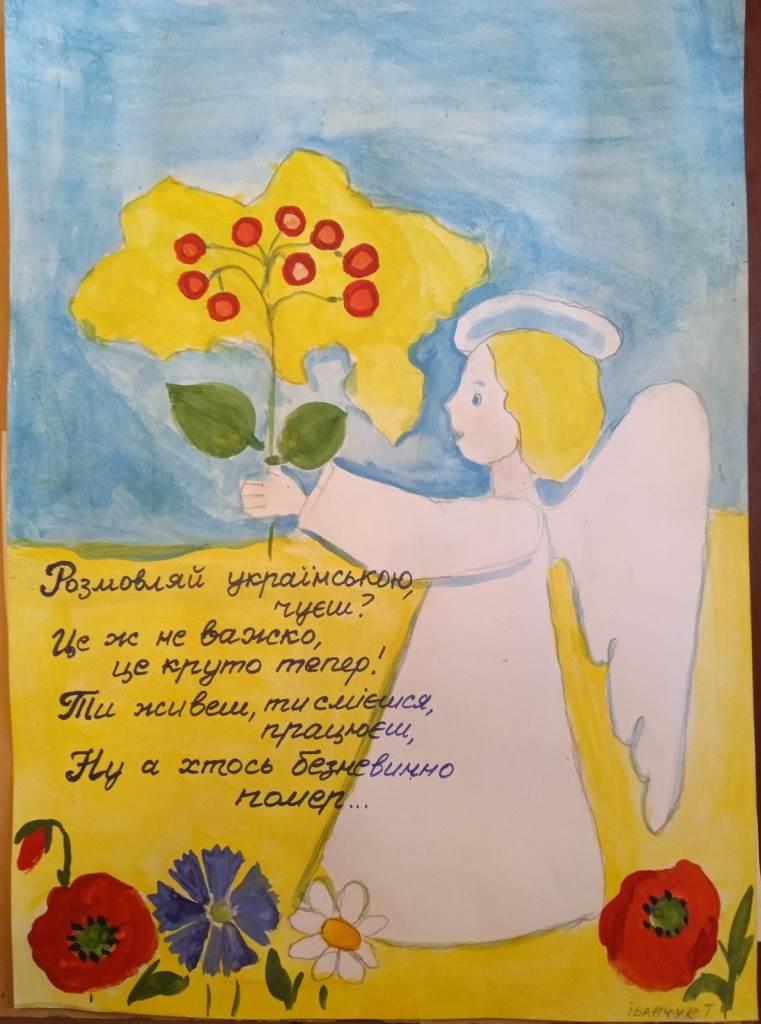 Розмовляй українською,
чуєш?
Це ж не важко,
це круто тепер!
Ти живеш, ти смієшся,
працюєш,
Ну а хтось безневинно
помер...
Іванчук Т.